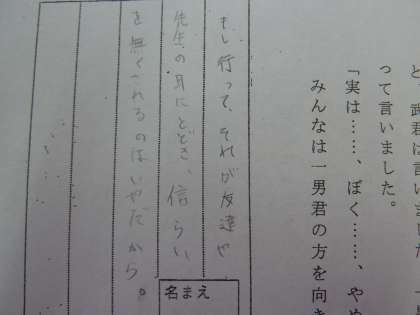 と、武君は言いました。
って言いました。
「実は……、ぼく……、やめ
みんなは一男君の方を向き
もし行って、それが友達や
先生の耳にとどき、信らい
を無くされるのはいやだから。
名まえ